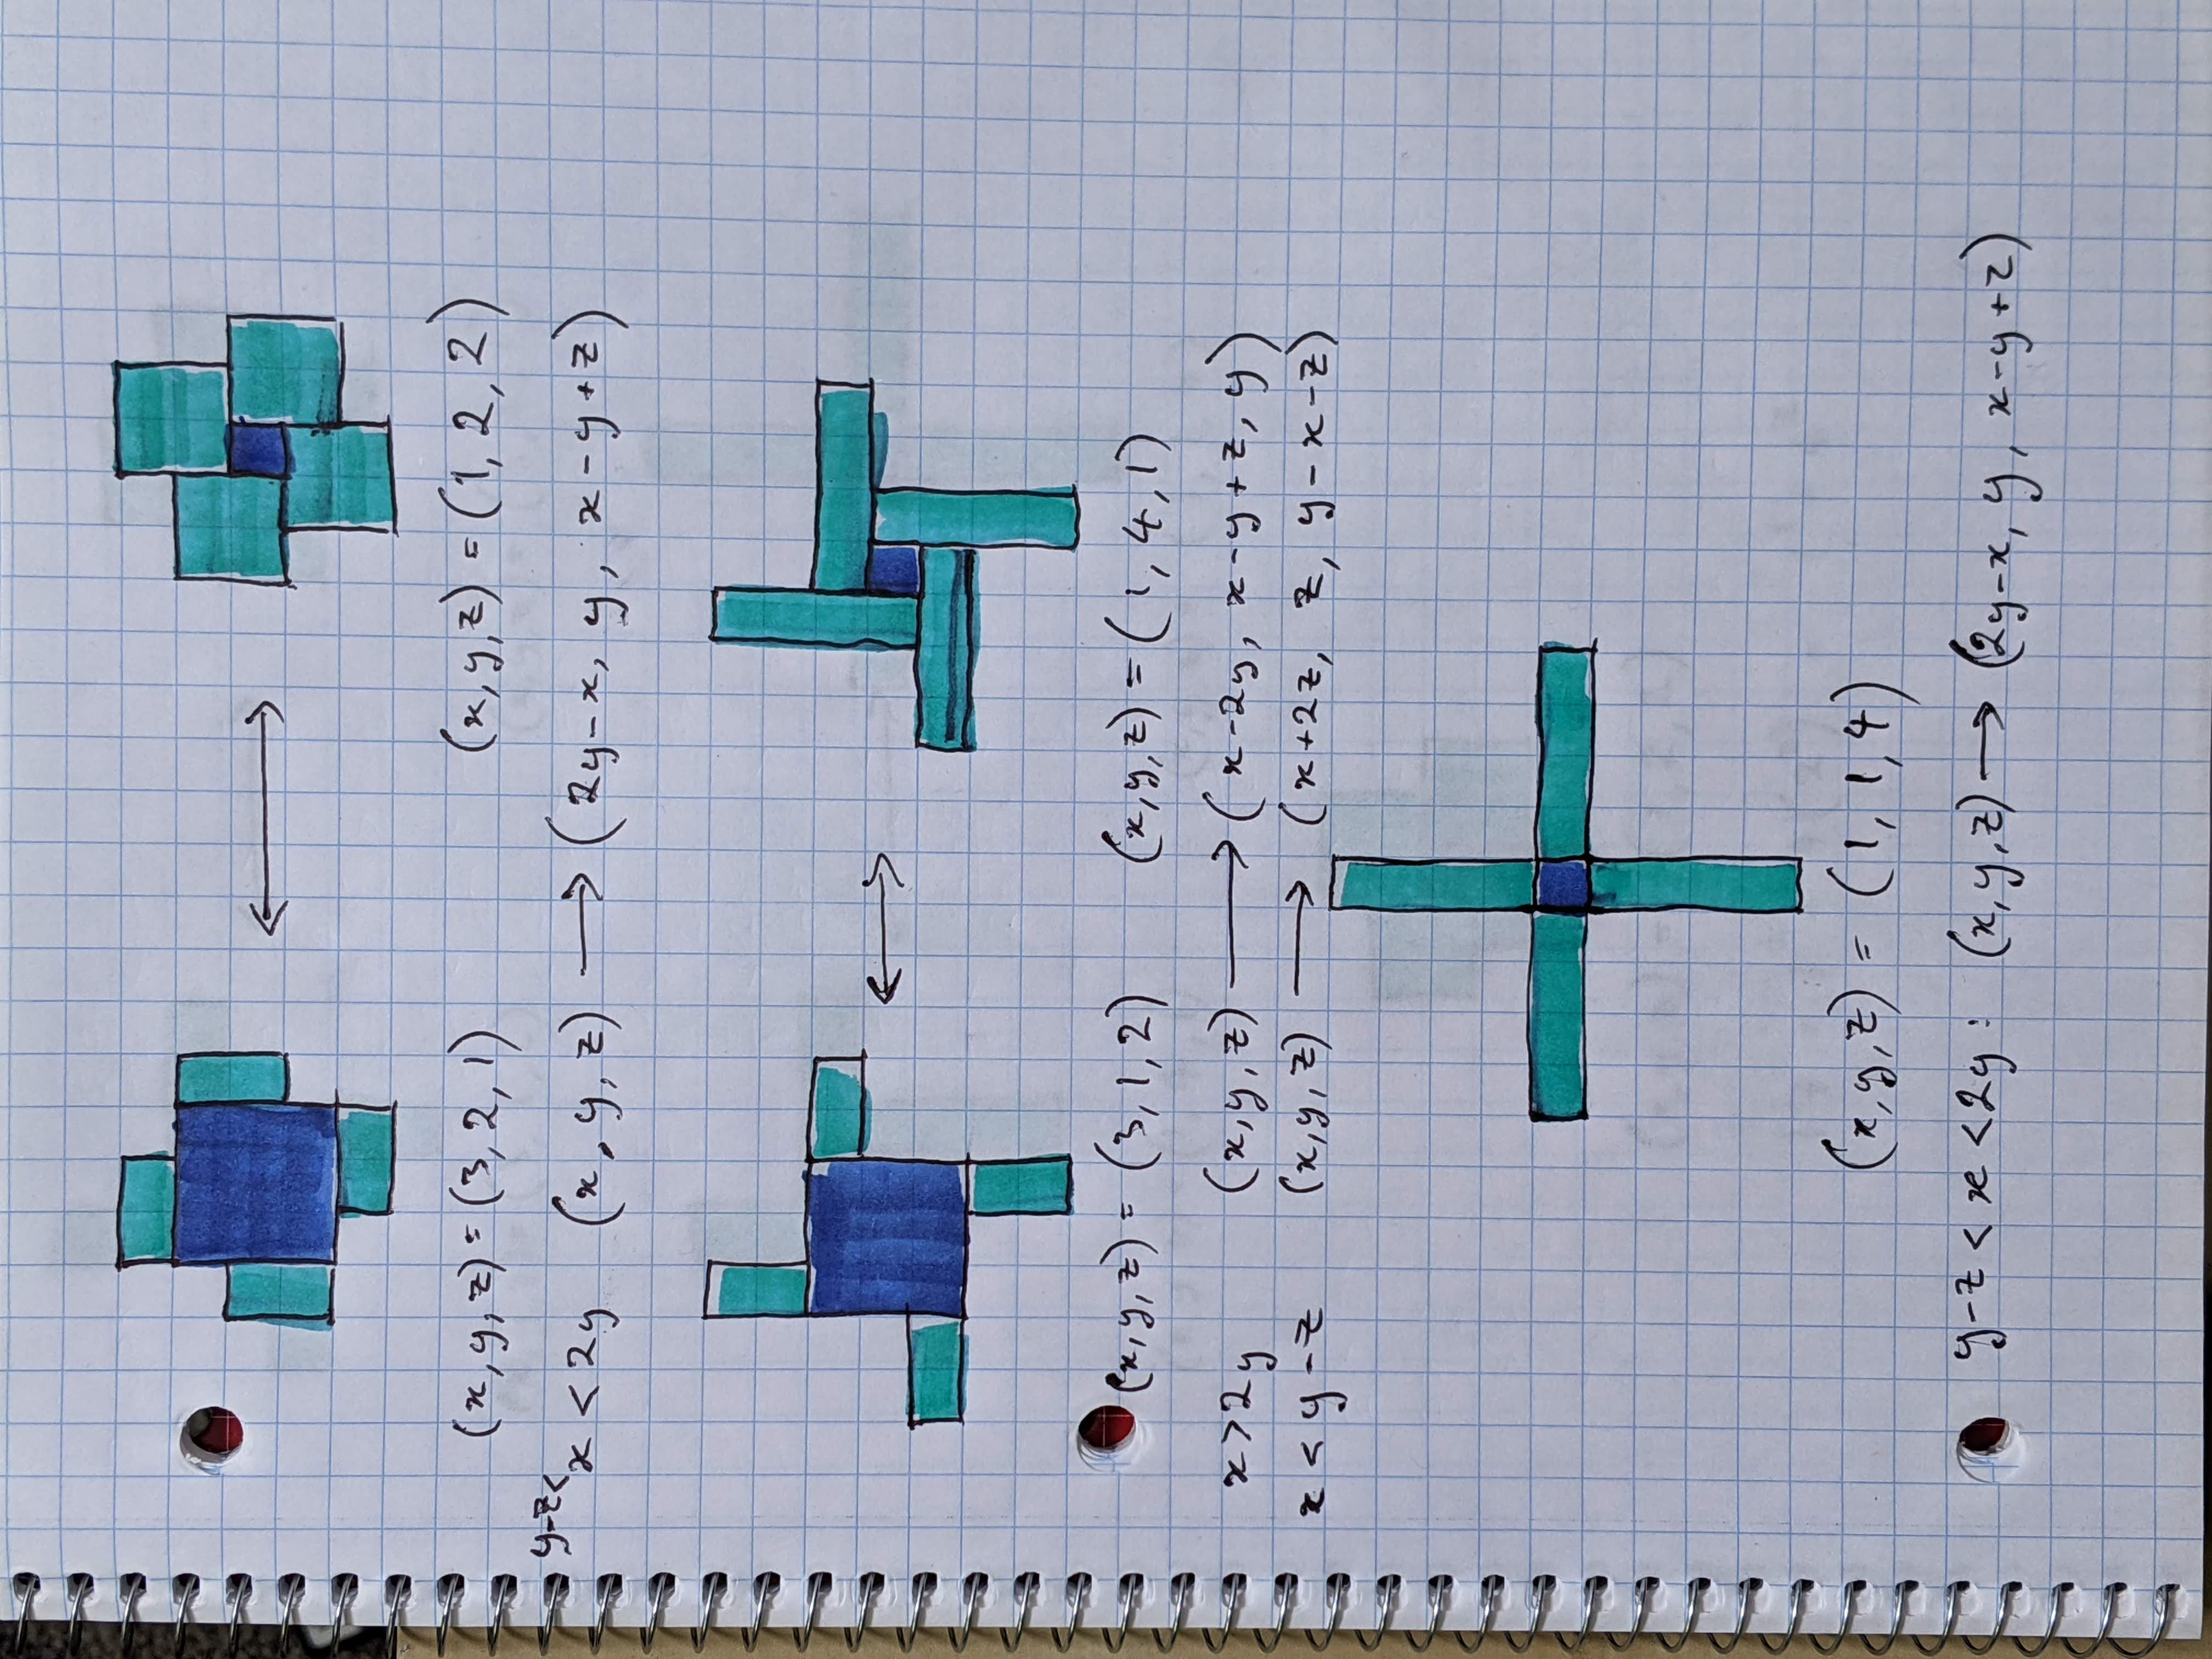 (x, y, z) = (3, 2, 1) (x, y, z) = (1, 2, 2)
y-z< x < 2y (x, y, z) ⟶ (2y-x, y, x-y+z)
(x, y, z) = (3, 1, 2) (x, y, z) = (1, 4, 1)
x > 2y (x, y, z) ⟶ (x-2y, x-y+z, y)
x < y-z (x, y, z) ⟶ (x+2z, z, y-x-z)
(x, y, z) = (1, 1, 4)
y-z < x < 2y: (x, y, z) ⟶ (2y-x, y, x-y+z)